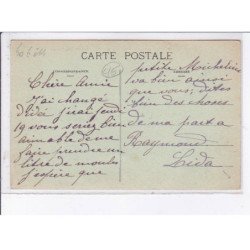 CARTE POSTALE
CORRESPONDANCE
ADRESSE
Chère Amie
J'ai changé
d'idé j'irai jeudi
19 vous seriez bien
aimable de me
faire vendre un
litre de moules
j'espère que
petite Micheline
va bien ainsi
que vous; dites
bien des choses
de ma part a
Raymond
Lrida